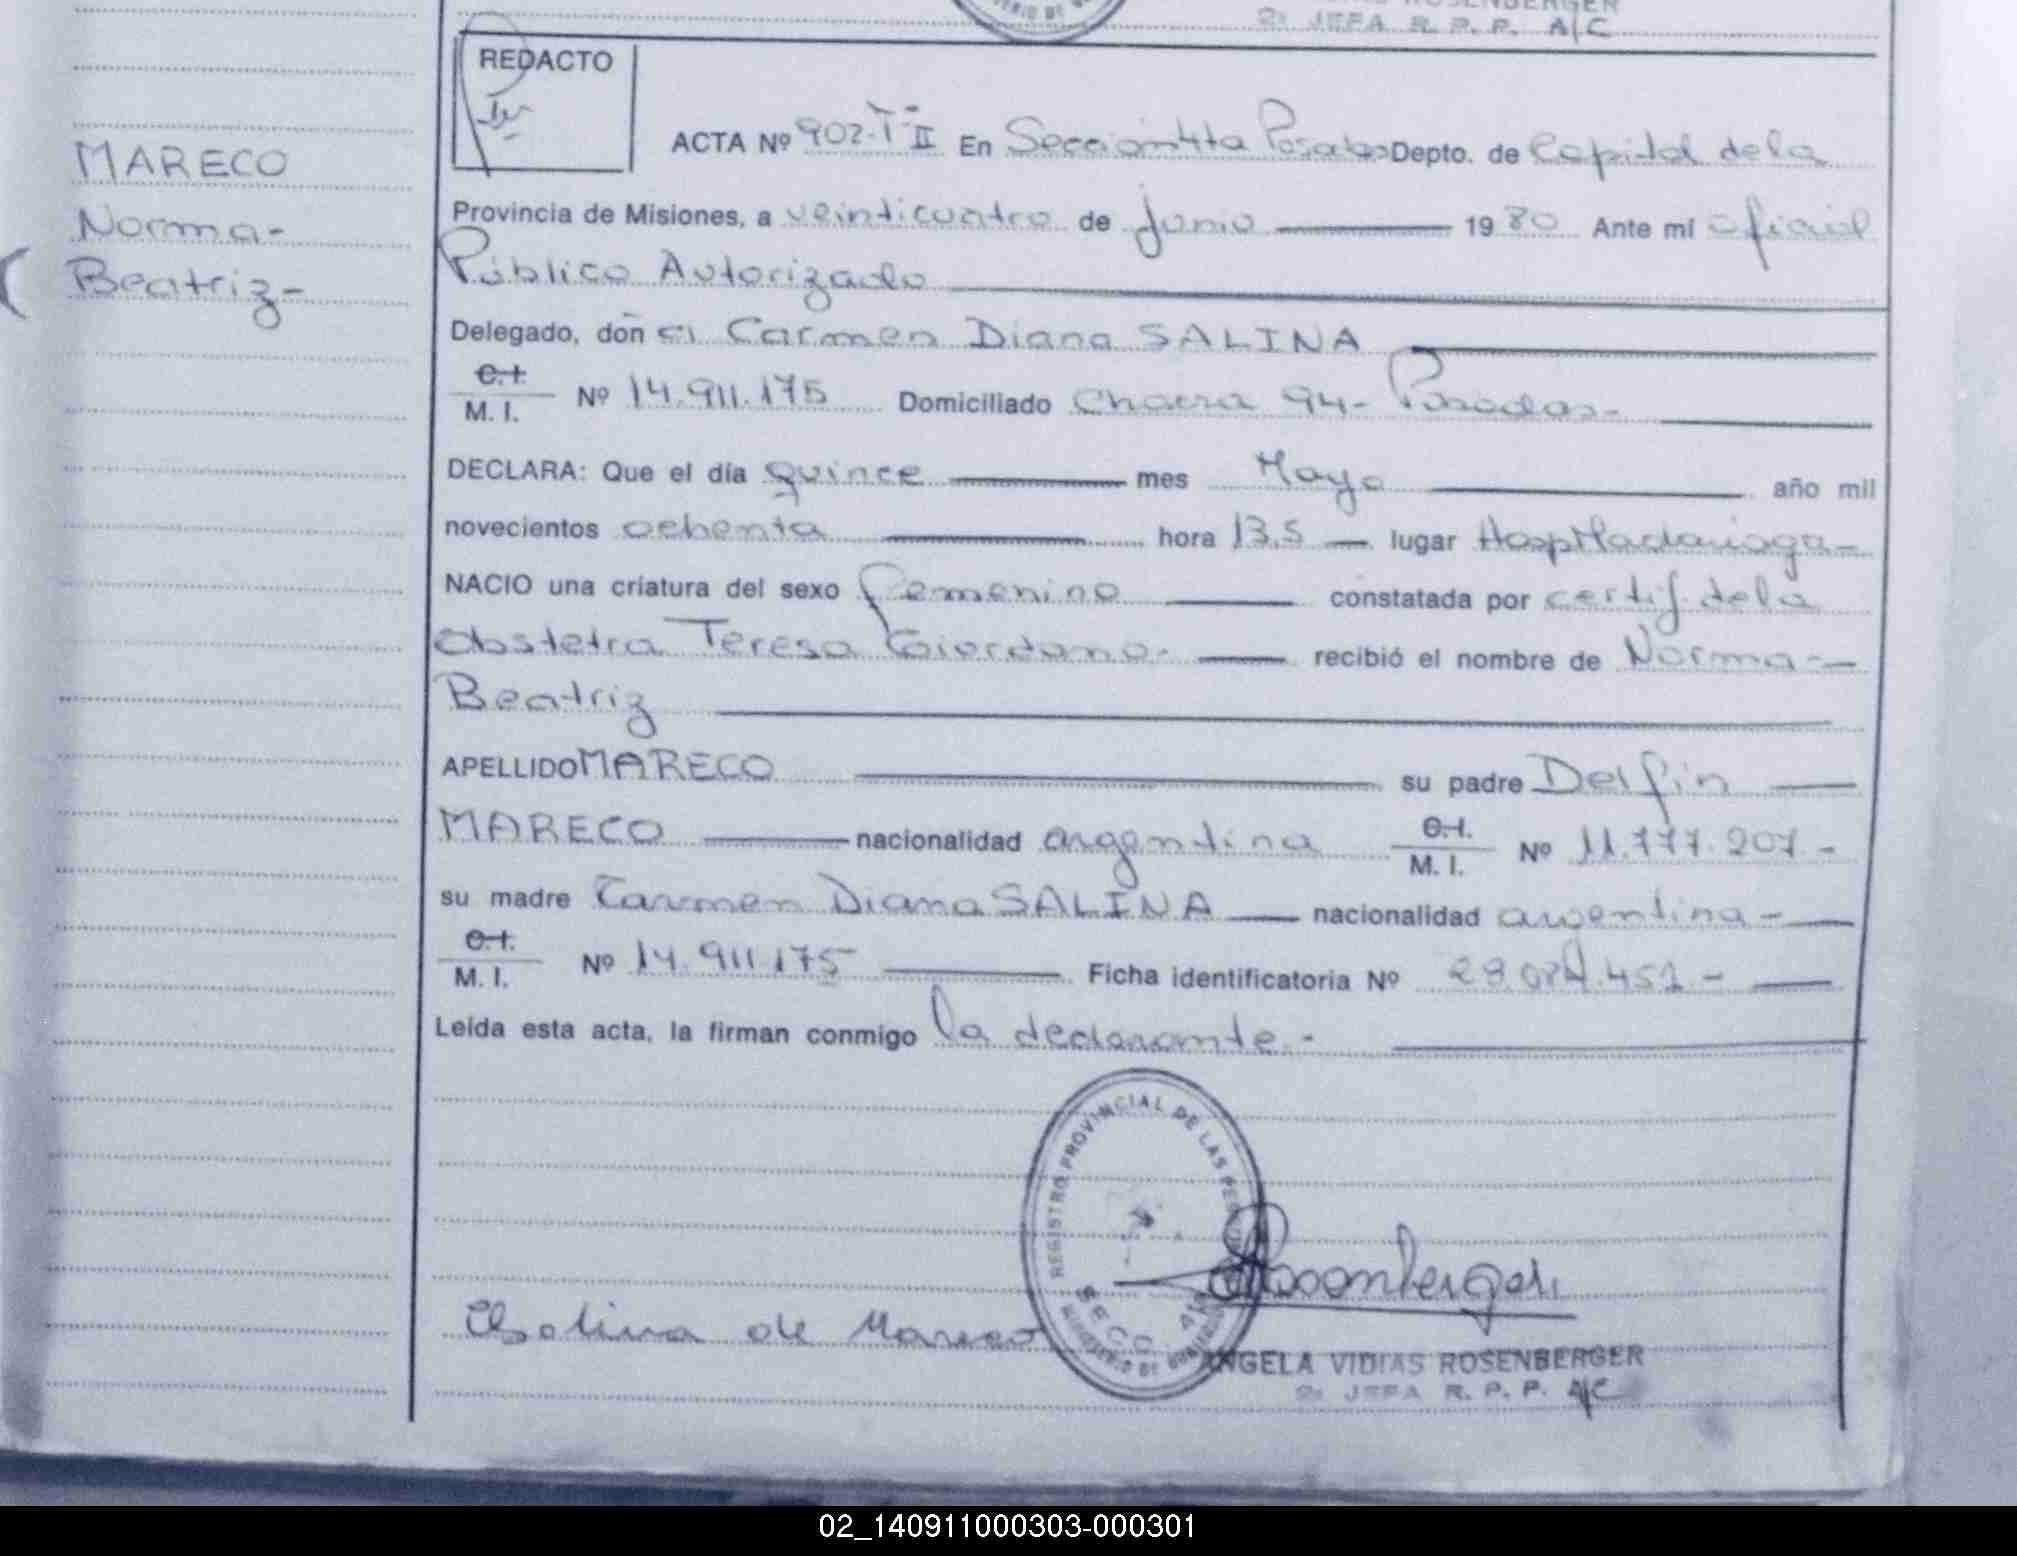 2: JEFA R. P. P. A/C
REDACTO
MARECO
Norma-
Beatriz-
ACTA Nº 902-T-II En Sección 4ta Posadas Depto. de Capital de la
Provincia de Misiones, a veinticuatro de Junio 1980 Ante mi oficial
Público Autorizado
Delegado, don Carmen Diana SALINA
C.I.
M. I. Nº 14.911.175 Domiciliado Chacra 94- Posadas-
DECLARA: Que el día quince mes Mayo año mil
novecientos ochenta hora 13,5 lugar Hosp Madariaga-
NACIO una criatura del sexo femenino constatada por certif. de la
Obstetra Teresa Giordano- recibió el nombre de Norma-
Beatriz
APELLIDO MARECO su padre Delfin
MARECO nacionalidad argentina C.I.
M. I. Nº 11.777.207-
su madre Carmen Diana SALINA nacionalidad argentina-
C.I.
M. I. Nº 14.911.175 Ficha identificatoria Nº 28.084.451-
Leída esta acta, la firman conmigo la declarante.-
REGISTRO PROVINCIAL DE LAS PERSONAS
SECC. 4ta
MINISTERIO DE GOBIERNO
Salina de Mareco
ANGELA VIDIAS ROSENBERGER
2: JEFA R. P. P. A/C
02_140911000303-000301